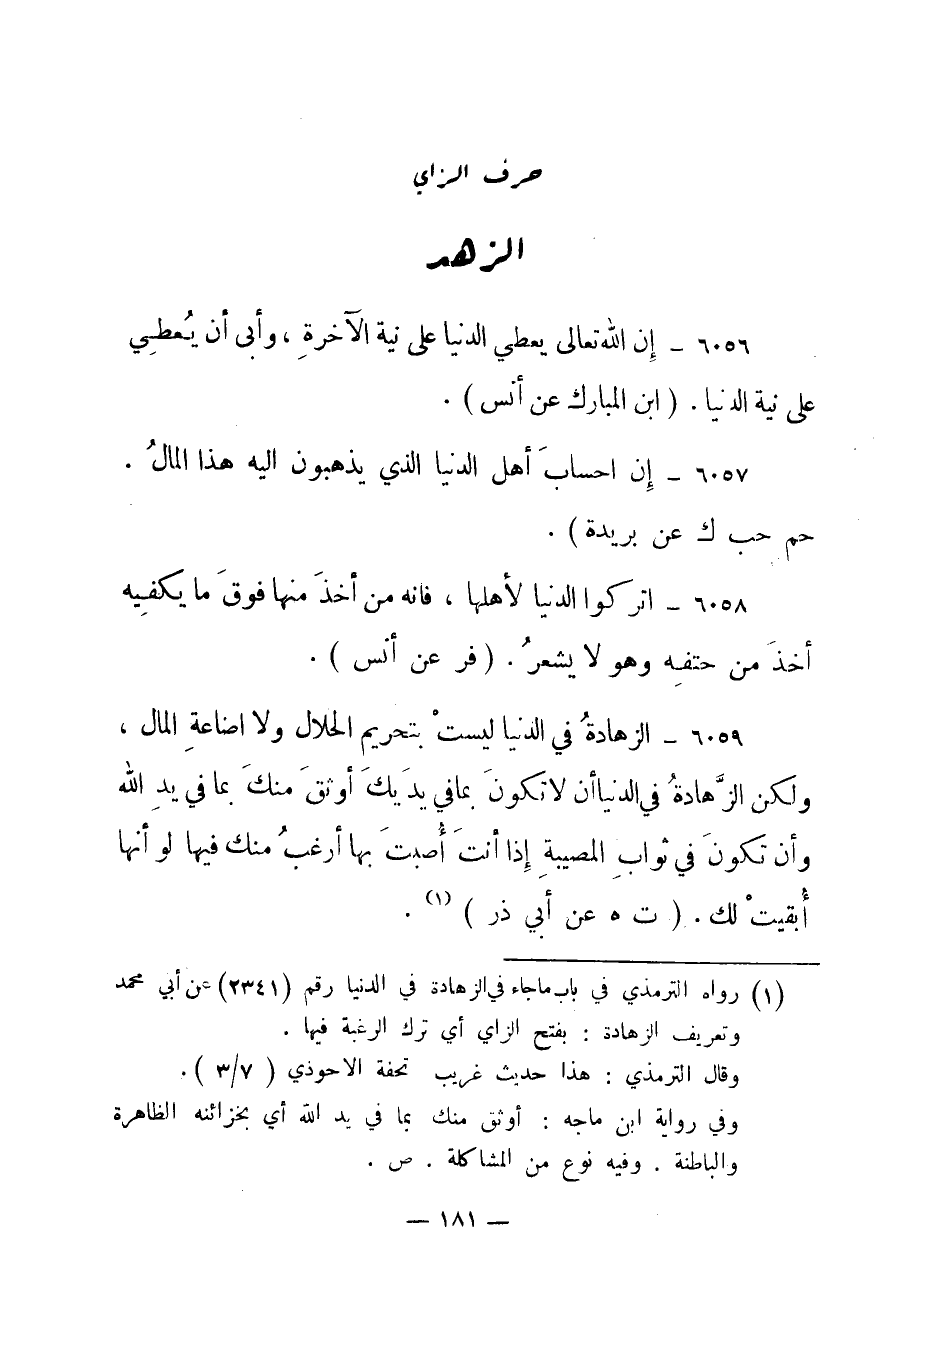 حرف الزاي
الزهد
٦٠٥٦ - إِن الله تعالى يعطي الدنيا على نية الآخرةِ ، وأبى أن يُعطِي
على نية الدنيا . ( ابن المبارك عن أنس ) .
٦٠٥٧ - إِن احسابَ أهل الدنيا الذي يذهبون اليه هذا المالُ .
حم حب ك عن بريدة ) .
٦٠٥٨ - اتركوا الدنيا لأهلها ، فانه من أخذَ منها فوقَ ما يكفِيه
أخذَ من حتفِه وهو لا يشعرُ . ( فر عن أنس ) .
٦٠٥٩ - الزهادةُ في الدنيا ليستْ بتحريم الحلال ولا اضاعةِ المال ،
ولكن الزَّهادةُ في الدنيا أن لا تكونَ بما في يدَيكَ أوثقَ منكَ بما في يدِ الله
وأن تكونَ في ثوابِ المصيبةِ إِذا أنتَ أُصبتَ بها أرغبُ منك فيها لو أنها
أُبقيتْ لك . ( ت ه عن أبي ذر ) (١) .
(١) رواه الترمذي في باب ماجاء في الزهادة في الدنيا رقم (٢٣٤١) عن أبي محمد
وتعريف الزهادة : بفتح الزاي أي ترك الرغبة فيها .
وقال الترمذي : هذا حديث غريب تحفة الاحوذي ( ٣/٧ ) .
وفي رواية ابن ماجه : أوثق منك بما في يد الله أي بخزائنه الظاهرة
والباطنة . وفيه نوع من المشاكلة . ص .
— ١٨١ —